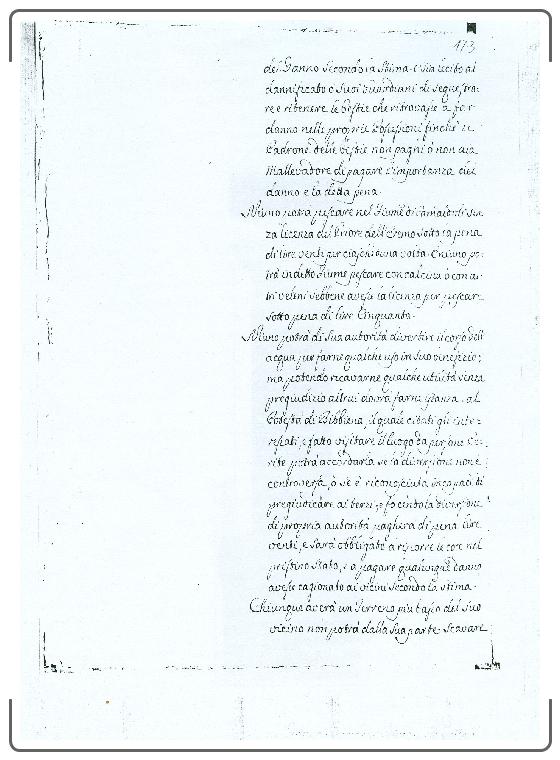 173
del Danno secondo la stima. e sia lecito al
dannificato e suoi Guardiani di sequestra-
re e ritenere le bestie che ritrovasse a far
danno nelle proprie Possessioni finche il
Padrone delle bestie non paghi o non dia
Mallevadore di pagare l'importanza del
danno e la detta pena.
Niuno potrà pescare nel Fiume di Camaldoli sen-
za licenza del Priore dell'Eremo sotto la pena
di lire venti per ciascheduna volta. Chiuno po-
trà in detto Fiume pescare con calcina o con al-
tri veleni sebbene avesse la licenza per pescare
sotto pena di lire Cinquanta.
Niuno potrà di sua autorità divertire il corso dell'
acqua per farne qualche uso in suo benefizio;
ma potendo ricavarne qualche utilità senza
pregiudizio altrui dovrà farne istanza al
Potestà di Bibbiena, il quale citati gli inte-
ressati, e fatto visitare il luogo da persone Pe-
rite potrà accordarla se la diversione non è
controversa, o se è riconosciuta incapace di
pregiudicare ai terzi, e facendo la diversione
di propria autorità pagherà di pena lire
venti, e sarà obbligato a riporre le cose nel
pristino stato, e a pagare qualunque danno
avesse cagionato ai vicini secondo la stima.
Chiunque averà un Terreno più basso del suo
vicino non potrà dalla sua parte scavare